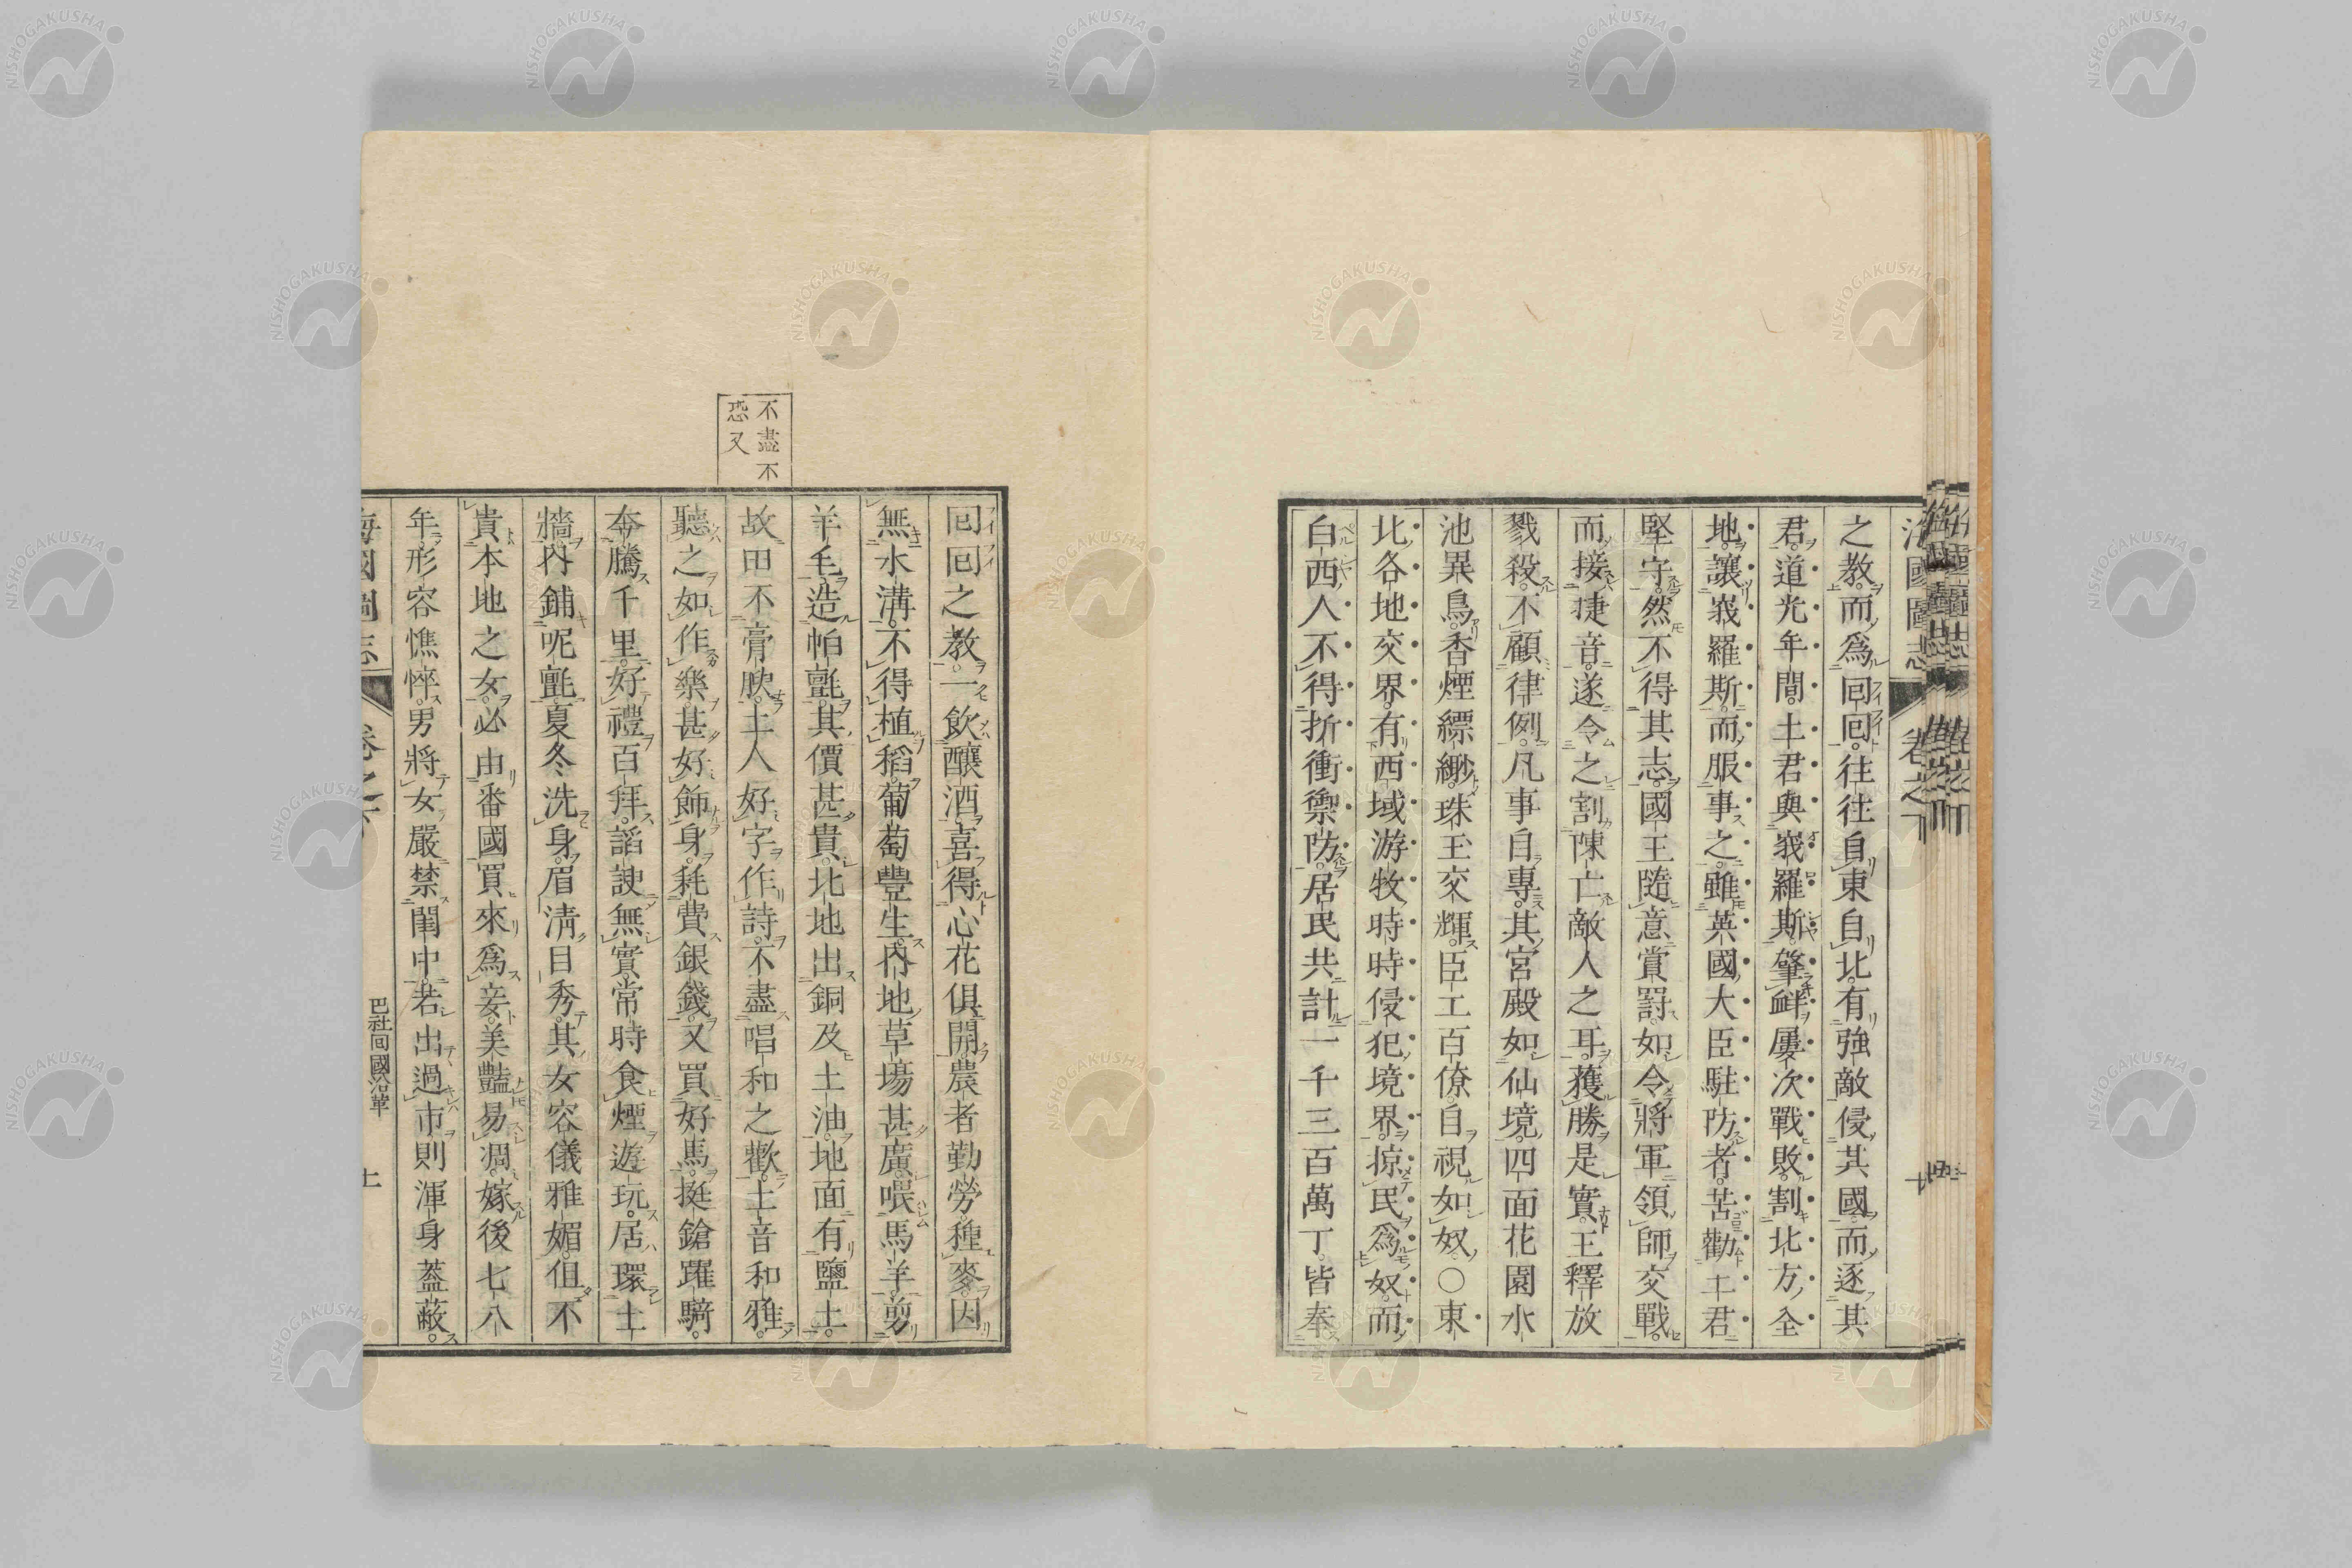 海國圖志
卷之下
之教而爲回回往往自東自北有強敵侵其國而逐其
君。道光年間。土君與峩羅斯肇衅。屢次戰敗。割北方全
地。讓峩羅斯。而服事之。雖英國大臣駐防者。苦勸土君
堅守。然不得其志。國王隨意賞罰。如令將軍領師交戰。
而接捷音。遂令之割陳亡敵人之耳。獲勝是實。王釋放
戮殺。不顧律例。凡事自專。其宮殿如仙境。四面花園水
池異鳥。香煙縹緲。珠玉交輝。臣工百僚。自視如奴。〇東
北各地交界。有西域游牧。時時侵犯境界。掠民爲奴。而
白西人不得折衝禦防。居民共計一千三百萬丁。皆奉
不盡不
恐又
回回之教。一飲釀酒。喜得心花俱開。農者勤勞。種麥。因
無水溝。不得植稻。葡萄豐生。內地草塲甚廣。喂馬羊。剪
羊毛。造帕氈。其價甚貴。北地出銅及土油。地面有鹽土。
故田不膏腴。土人好字作詩。不盡唱和之歡。土音和雅。
聽之如作樂。甚好飾身。耗費銀錢。又買好馬。挺鎗躍騎。
奔騰千里。好禮百拜。諂諛無實。常時食煙遊玩。居環土
牆。內鋪呢氈。夏冬洗身。眉淸目秀。其女容儀雅媚。但不
貴本地之女。必由番國買來爲妾。美豔易凋。嫁後七八
年。形容憔悴。男將女嚴禁閨中。若出過市。則渾身蓋蔽。
海國圖志
卷之下
巴社回國沿革